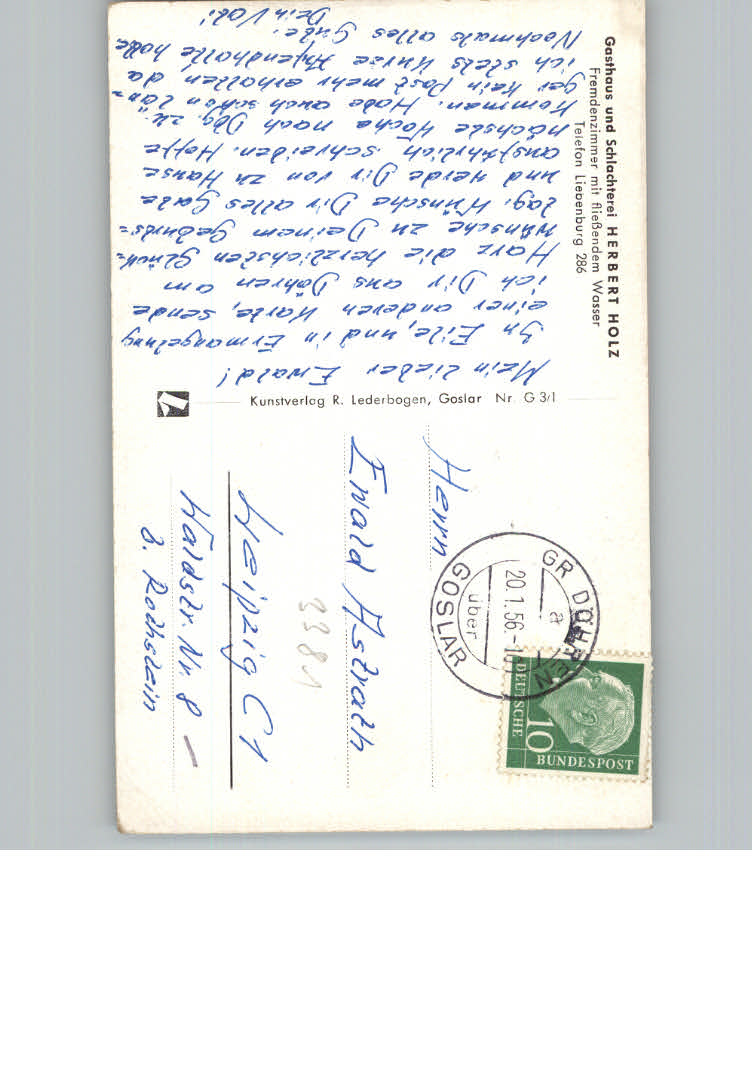 Gasthaus und Schlachterei HERBERT HOLZ
Fremdenzimmer mit fließendem Wasser
Telefon Liebenburg 286
Mein lieber Ewald!
In Eile, und in Ermangelung
einer anderen Karte, sende
ich Dir aus Döhren am
Harz die herzlichsten Glück-
wünsche zu Deinem Geburts=
tag. Wünsche Dir alles Gute
und werde Dir von zu Hause
ausführlich schreiben. Hoffe
nächste Woche nach Dbg. zu
kommen. Habe auch schon län=
ger kein Post mehr erhalten da
ich stets kurze Aufendhalte habe
Nochmals alles Gute.
Dein
Kunstverlag R. Lederbogen, Goslar Nr. G 3/1
Herrn
Ewald Astrath
Leipzig C1
Waldstr. Nr. 8
b. Rothstein
3381
GR DÖHREN
über
GOSLAR
a
20.1.56.-1
DEUTSCHE
10
BUNDESPOST